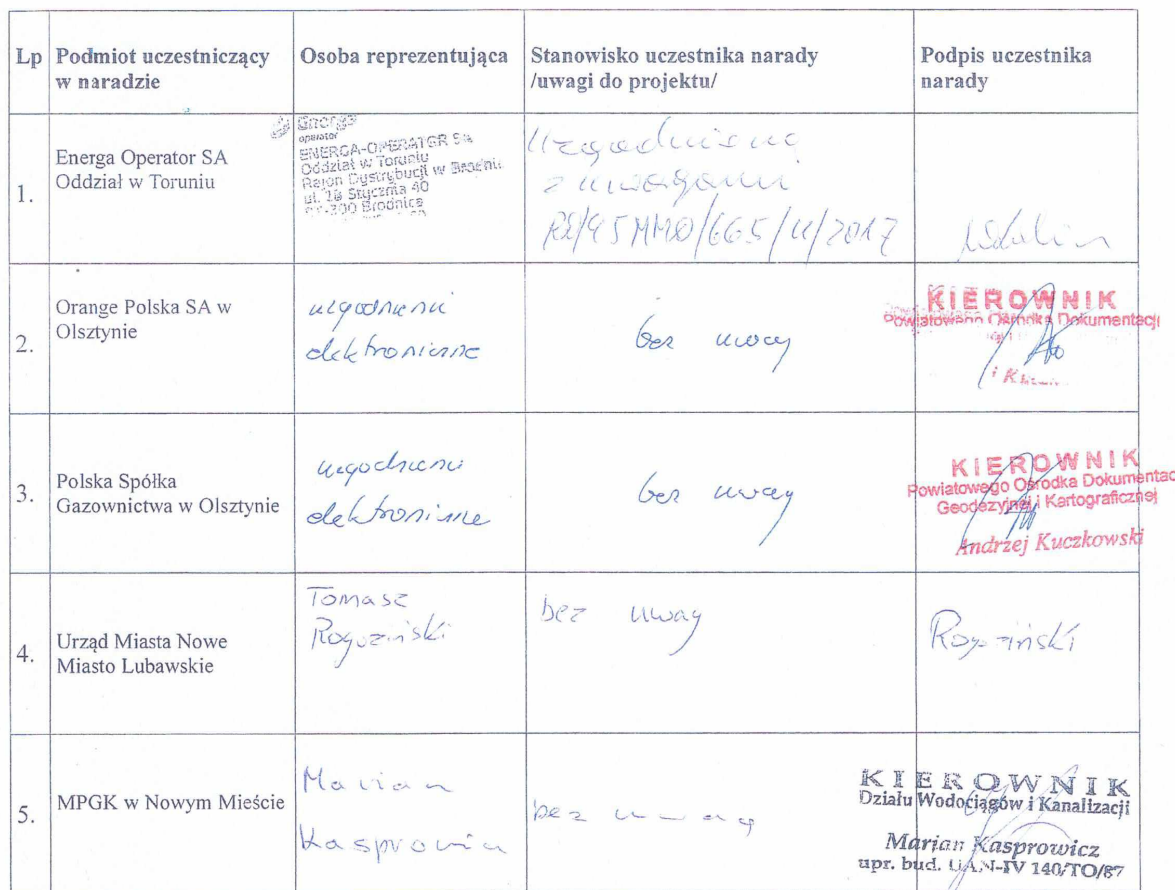 Lp Podmiot uczestniczący w naradzie Osoba reprezentująca Stanowisko uczestnika narady /uwagi do projektu/ Podpis uczestnika narady
1.
Energa Operator SA
Oddział w Toruniu
Energa
operator
ENERGA-OPERATOR SA
Oddział w Toruniu
Rejon Dystrybucji w Brodnicy
ul. 18 Stycznia 40
87-300 Brodnica
Uzgodniono
z uwagami
665/11/2017
2.
Orange Polska SA w
Olsztynie
uzgodnienie
elektroniczne
bez uwag
KIEROWNIK
Powiatowego Ośrodka Dokumentacji
3.
Polska Spółka
Gazownictwa w Olsztynie
uzgodnienie
elektroniczne
bez uwag
KIEROWNIK
Powiatowego Ośrodka Dokumentac
Geodezyjnej i Kartograficznej
Andrzej Kuczkowski
4.
Urząd Miasta Nowe
Miasto Lubawskie
Tomasz
Rogoziński
bez uwag
Rogoziński
5.
MPGK w Nowym Mieście
Marian
Kasprowicz
bez uwag
KIEROWNIK
Działu Wodociągów i Kanalizacji
Marian Kasprowicz
upr. bud. UAN-IV 140/TO/87